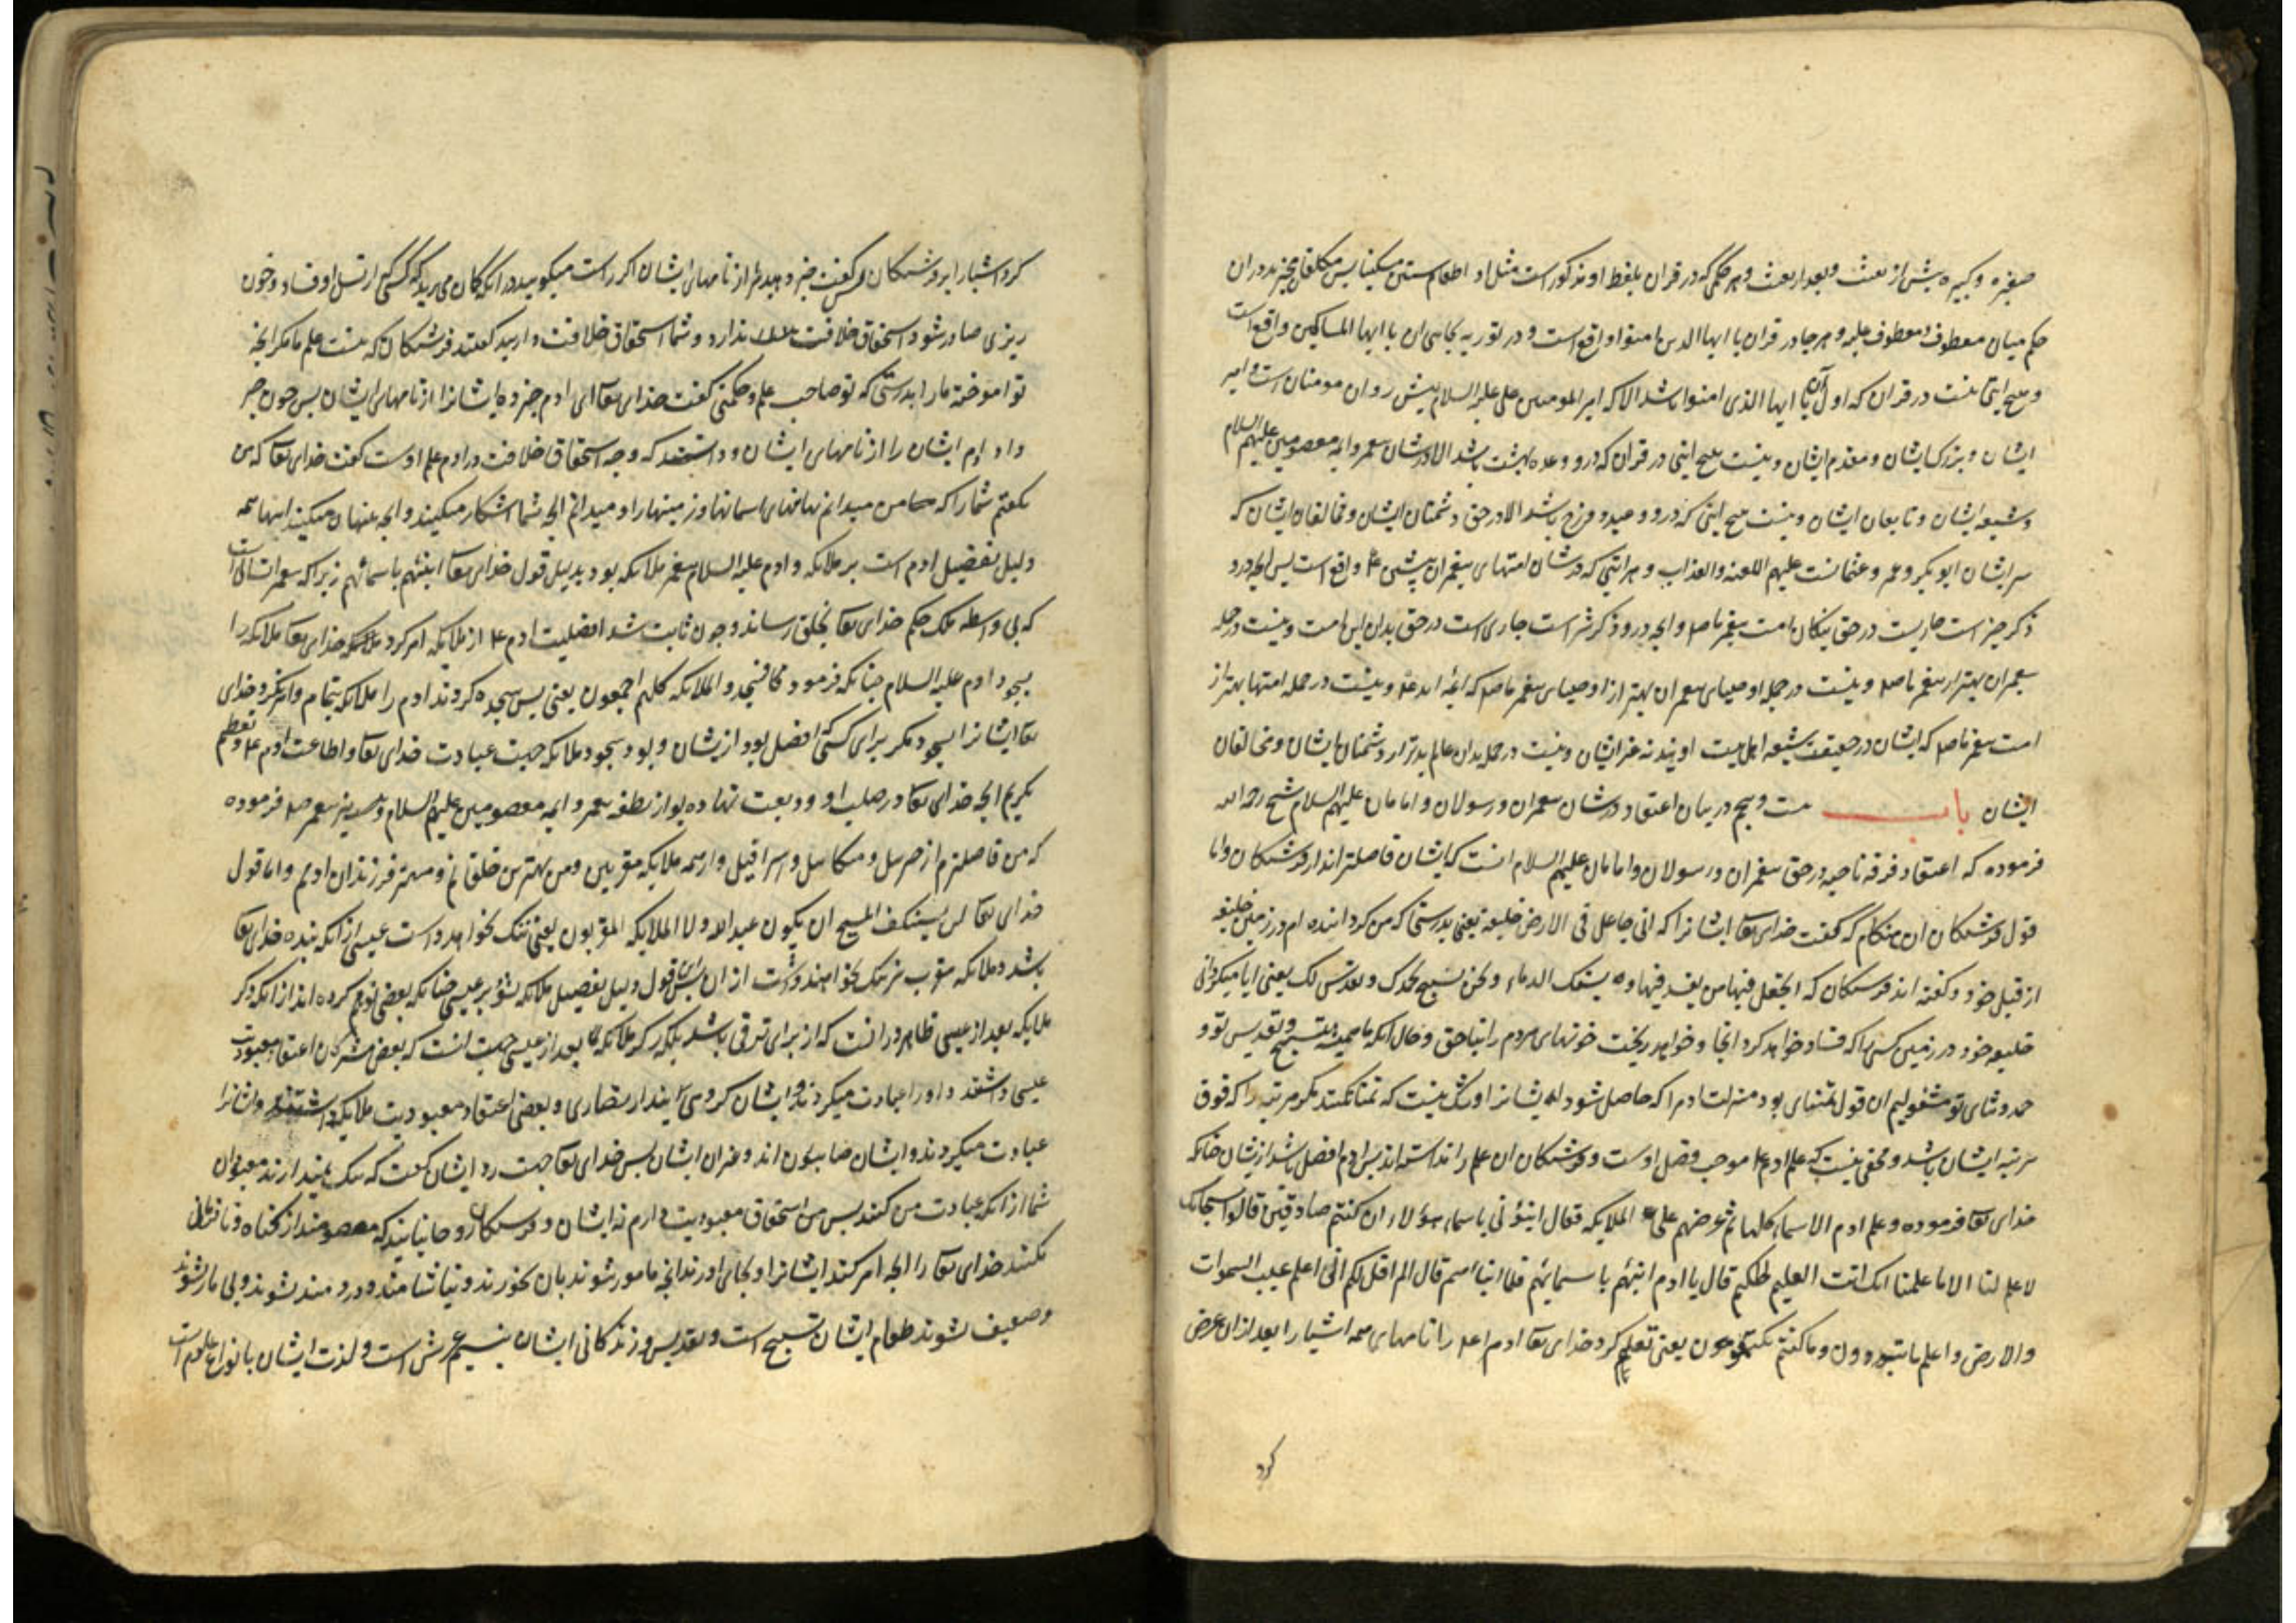 صغیره و کبیره پیش از بعثت و بعد از بعثت و هر حکمی که در قران بلفظ او مذکور است مثل او اطعام ستین مسکینا پس مکلفان مخیرند در ان
حکم میان معطوف و معطوف علیه و هر جا در قران یا ایها الذین امنوا واقع است و در توریه بجای ان یا ایها المساکین واقع است
و هیچ ایتی نیست در قران که اول آن یا ایها الذی امنوا باشد الا که امیر المومنین علی علیه السلام پیش روان مومنان است و امیر
ایشان و بزرک ایشان و مقدم ایشان و نیست هیچ ایتی در قران که درو وعده بهشت باشد الا در شان پیغمبر و ایمه معصومین علیهم السلام
و شیعه ایشان و تابعان ایشان و نیست هیچ ایتی که درو وعید دوزخ باشد الا در حق دشمنان ایشان و مخالفان ایشان که
سر ایشان ابو بکر و عمر و عثمانست علیهم اللعنه والعذاب و هر ایتی که در شان امتهای پیغمبران پیشین ع واقع است پس انچه درو
ذکر خیر است جاریست در حق نیکان امت پیغمبر ما صلم و انچه درو ذکر شر است جاری است در حق بدان این امت و نیست در جمله
پیغمبران بهتر از پیغمبر ما صلم و نیست در جمله اوصیای پیغمبران بهتر از اوصیای پیغمبر ما صلم که ایمه اند ع و نیست در جمله امتها بهتر از
امت پیغمبر ما صلم که ایشان در حقیقت شیعه اهل بیت اویند نه غیر ایشان و نیست در جمله بدان عالم بدتر از دشمنان ایشان و مخالفان
ایشان باب ست و پنجم در بیان اعتقاد در شان پیغمبران و رسولان و امامان علیهم السلام شیخ رحمه الله
فرموده که اعتقاد فرقه ناجیه در حق پیغمبران و رسولان و امامان علیهم السلام انست که ایشان فاضلتر اند از فرشتکان و اما
قول فرشتکان ان هنکام که کفت خدای تعا ایشانرا که انی جاعل فی الارض خلیفه یعنی بدرستی که من کرداننده ام در زمین خلیفه
از قبل خود و کفته اند فرشتکان که اتجعل فیها من یفسد فیها و یسفک الدماء و نحن نسبح بحمدک و نقدس لک یعنی ایا میکردانی
خلیفه خود در زمین کسی را که فساد خواهد کرد انجا و خواهد ریخت خونهای مردم را بناحق و حال انکه ما همیشه بتسبیح و تقدیس تو و
حمد و ثنای تو مشغولیم ان قول تمنای بود منزلت ادم را که حاصل شود ایشانرا و شک نیست که تمنا نکنند مکر مرتبه را که فوق
مرتبه ایشان باشد و مخفی نیست که علم ادم ع موجب فضل اوست و فرشتکان ان علم را نداسته اند پس ادم افضل باشد از ایشان چنانکه
خدای تعا فرموده و علم ادم الاسماء کلها ثم عرضهم علی الملایکه فقال انبؤنی باسماء هؤلاء ان کنتم صادقین قالوا سبحانک
لا علم لنا الا ما علمتنا انک انت العلیم الحکیم قال یا ادم انبئهم باسمایهم فلما انباهم قال الم اقل لکم انی اعلم غیب السموات
والارض و اعلم ما تبدون و ما کنتم تکتمون یعنی تعلیم کرد خدای تعا ادم را نامهای همه اشیا را بعد از ان عرض
کرد
کرد اشیا را بر فرشتکان پس کفت خبر دهید مرا از نامهای ایشان اکر راست میکویید در انکه کمان می برید که کسی از نسل او فساد و خون
ریزی صادر شود استحقاق خلافت ندارد و شما استحقاق خلافت دارید کفتند فرشتکان که نیست علم ما مکر انچه
تو اموخته ما را بدرستی که تو صاحب علم و حکمتی کفت خدای تعا ای ادم خبر ده ایشانرا از نامهای ایشان پس چون خبر
داد ادم ایشان را از نامهای ایشان و دانستند که وجه استحقاق خلافت در ادم علم اوست کفت خدای تعا که من
نکفتم شما را که من میدانم نهانیهای اسمانها و زمینها را و میدانم انچه شما اشکار میکنید و انچه پنهان میکنید اینها همه
دلیل تفضیل ادم است بر ملایکه و ادم علیه السلام پیغمبر ملایکه بود بدلیل قول خدای تعا انبئهم باسمائهم زیرا که پیغمبر انسانی است
که بی واسطه ملک حکم خدای تعا بخلق رساند و چون ثابت شد افضلیت ادم ع از ملایکه امر کرد خدای تعا ملایکه را
بسجود ادم علیه السلام چنانکه فرمود فسجد الملایکه کلهم اجمعون یعنی پس سجده کردند ادم را ملایکه بتمام و امر نکرد خدای
تعا ایشانرا بسجود مکر برای کسی که افضل بود از ایشان و بود سجود ملایکه جهت عبادت خدای تعا و اطاعت ادم ع و تعظیم
تکریم انچه خدای تعا در صلب او ودیعت نهاده بود از نطفه پیغمبر و ایمه معصومین علیهم السلام و نیز پیغمبر صلم فرموده
که من فاضلترم از جبرییل و میکاییل و اسرافیل و از همه ملایکه مقربین و من بهترین خلقانم و مهتر فرزندان ادمم و اما قول
خدای تعا لن یستنکف المسیح ان یکون عبدا لله ولا الملایکه المقربون یعنی ننک نخواهد داشت عیسی از انکه بنده خدای تعا
باشد و ملایکه مقرب نیز ننک نخواهند داشت از ان پس این قول دلیل تفضیل ملایکه نشود بر عیسی چنانکه بعضی توهم کرده اند از انکه ذکر
ملایکه بعد از عیسی ظاهر در انست که از برای ترقی باشد بلکه ذکر ملایکه بعد از عیسی جهت انست که بعضی مشرکان اعتقاد معبودیت
عیسی داشتند و او را عبادت میکردند و ایشان کروهی اند از نصاری و بعضی اعتقاد معبودیت ملایکه داشتند و ایشانرا
عبادت میکردند و ایشان صابیون اند و غیر ان ایشان پس خدای تعا جهت رد ایشان کفت که ننک نمیدارند معبودان
شما از انکه عبادت من کنند پس من استحقاق معبودیت دارم نه ایشان و فرشتکان روحانیانیند که معصومند از کناه و نافرمانی
نکنند خدای تعا را انچه امر کند ایشانرا و بجای اورند انچه مامور شوند بان نخورند و نیاشامند و دردمند نشوند و بیمار نشوند
و ضعیف نشوند طعام ایشان تسبیح است و تقدیس و زندکانی ایشان بنسیم عرش است و لذت ایشان بانواع علومست